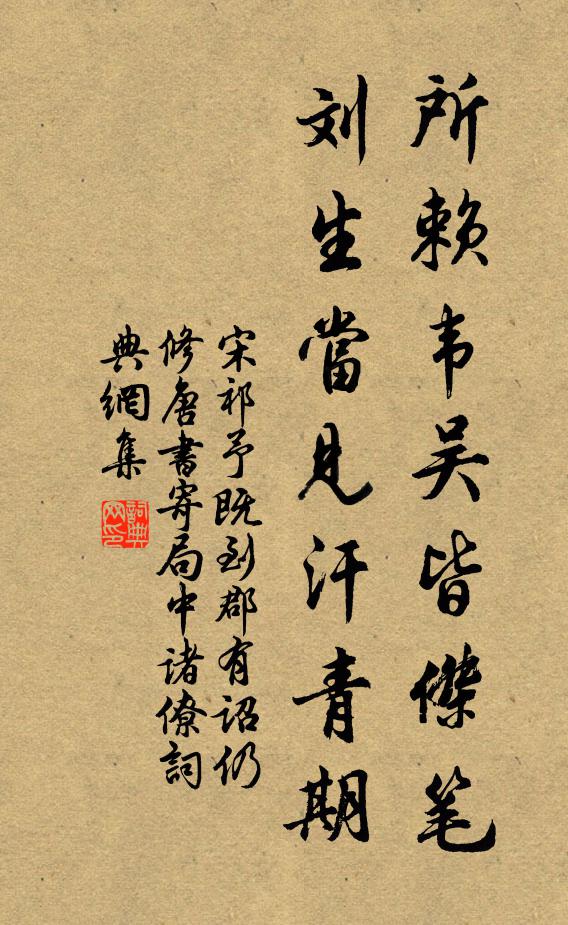 所赖韦吴皆傑笔
刘生當見汗青期
宋祁予既到郡有诏仍
修唐書寄局中诸僚詞
典網集
詞典網印